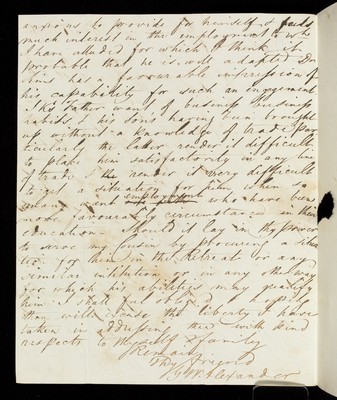 anxious to provide for himself & feels
much interest in the employment to who
I have alluded for which I think it
probable that he is well adapted Dn
Ellis has a favourable impression of
his capability for such an engagement
His Father want of business
habits, & his sons having been brought
up without a knowledge of trade par
ticularly the latter, render it difficult
to place him satisfactorily in any line
of trade & the render it very difficult
to get a situation for him when so
many want employment who have been
more favourably circumstanced in their
education. Should it lay in thy power
to serve my cousin by procuring a situa
tion for him in the Retreat or any
similar institution or in any other way
for which his abilities may qualify
him I shall feel obliged & hoping
thou wilt excuse the liberty I have
taken in addressing thee with kind
respects to thyself & family
I remain
Thy friend
G W Alexander